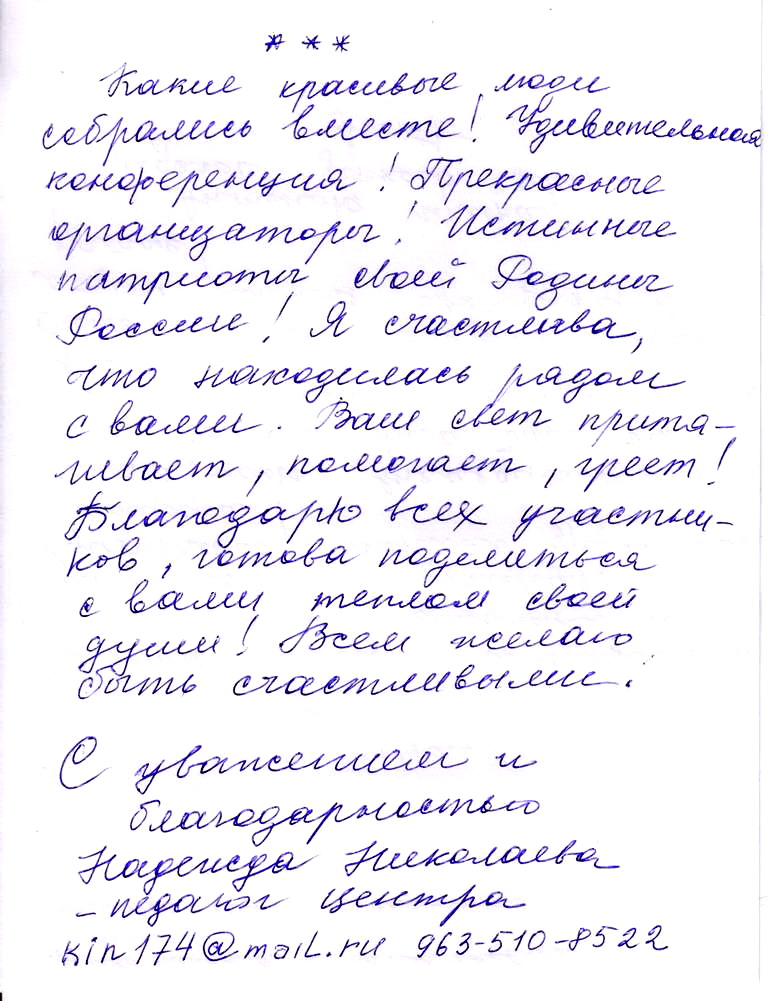 * * *
Какие красивые люди
собрались вместе! Удивительная
конференция! Прекрасные
организаторы! Истинные
патриоты своей Родины
России! Я счастлива,
что находилась рядом
с вами. Ваш свет притя-
гивает, помогает, греет!
Благодарю всех участни-
ков, готова поделиться
с вами теплом своей
души! Всем желаю
быть счастливыми.
С уважением и
благодарностью
Надежда Николаева
- педагог центра
kin174@mail.ru 963-510-8522